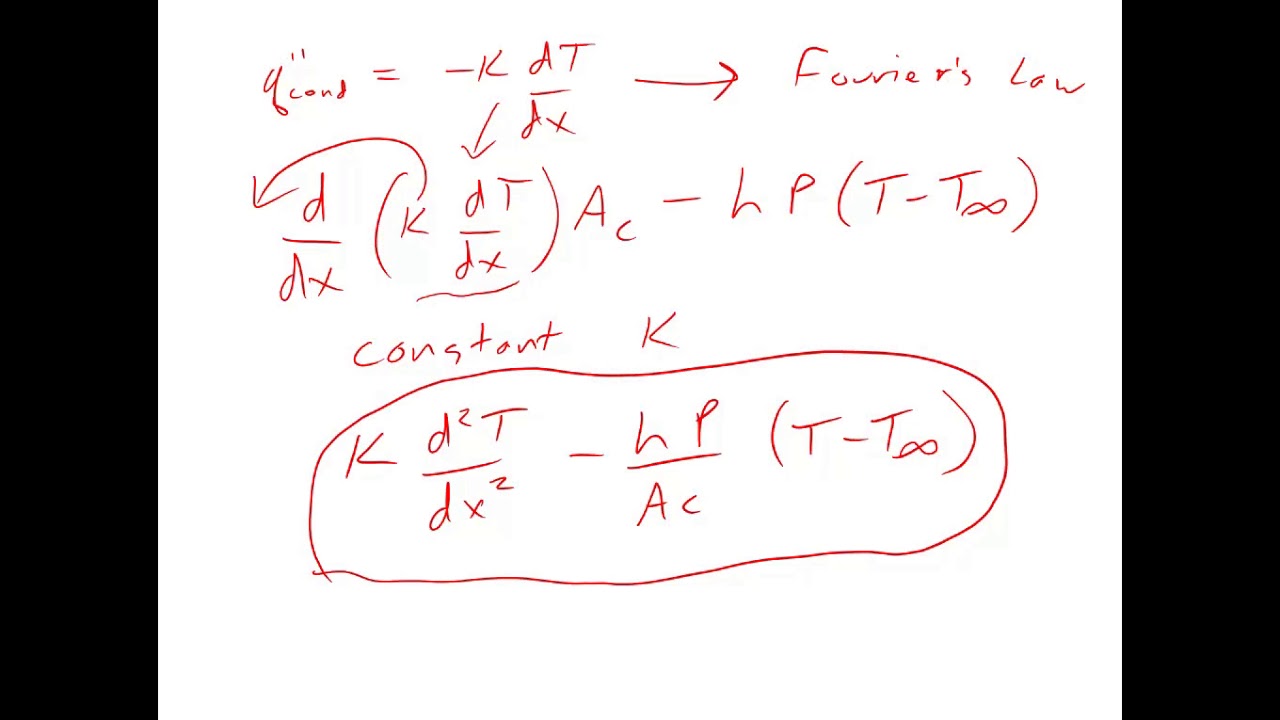 q''cond = -K dT/dx → Fourier's Law
d/dx (K dT/dx) Ac - h P (T - T∞)
constant K
K d²T/dx² - h P/Ac (T - T∞)